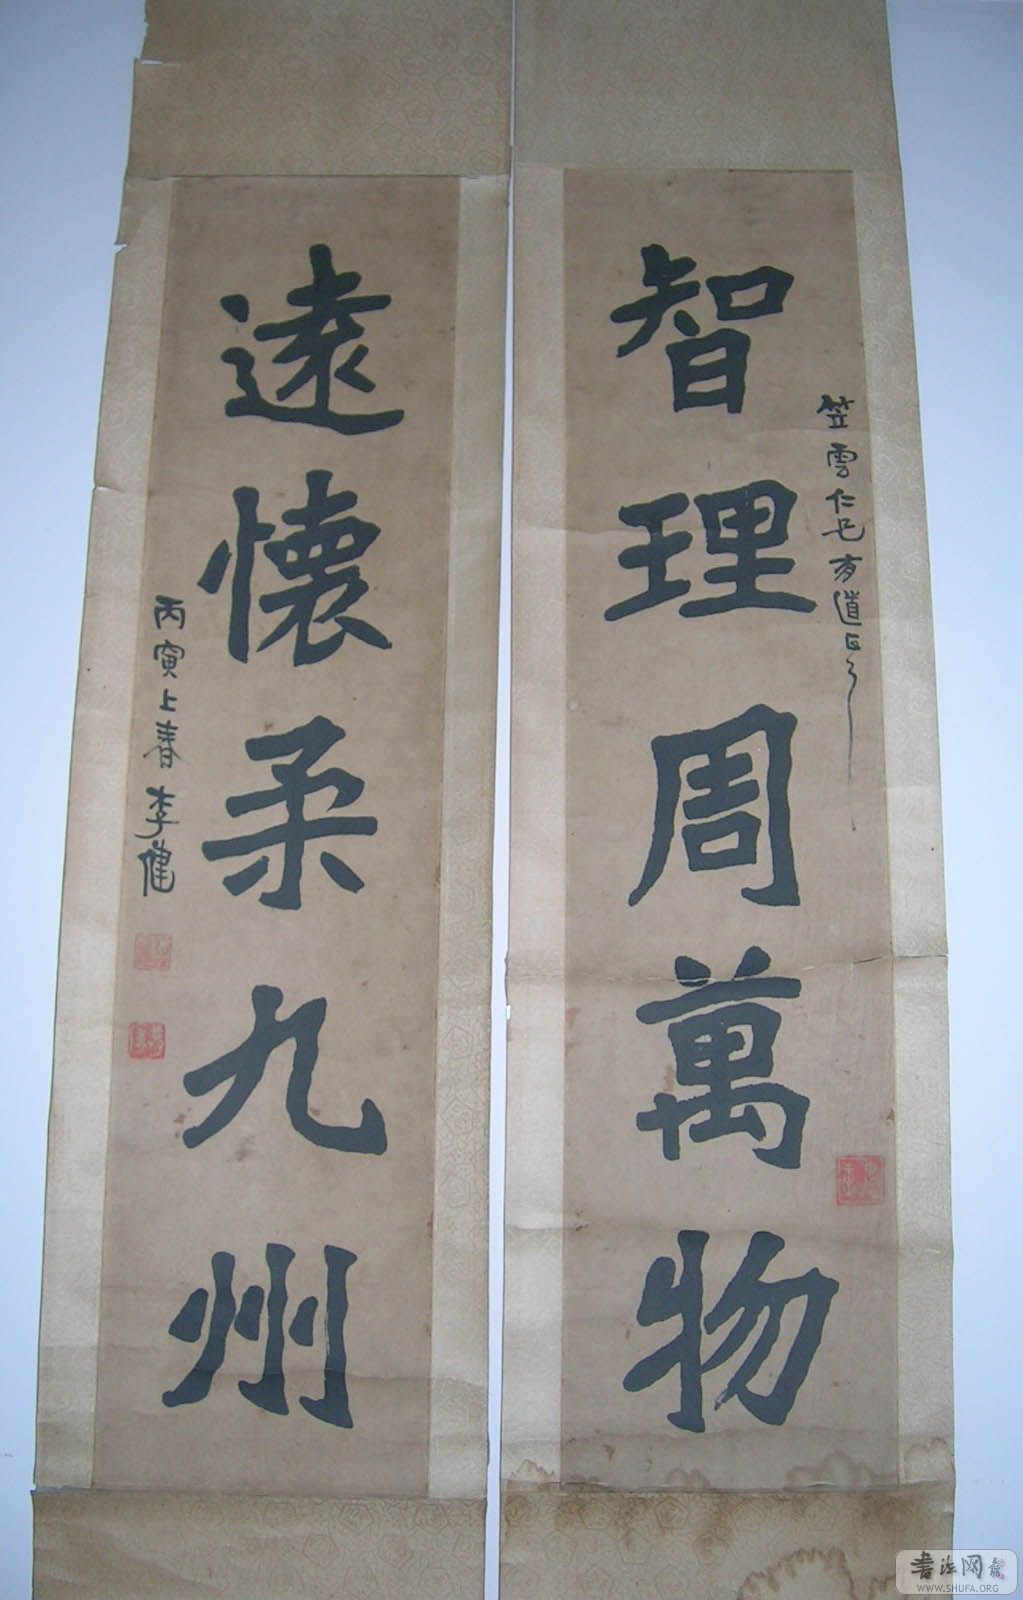 智理周萬物
笠雲仁兄有道正
遠懷柔九州
丙寅上春李健
書法网
WWW.SHUFA.ORG